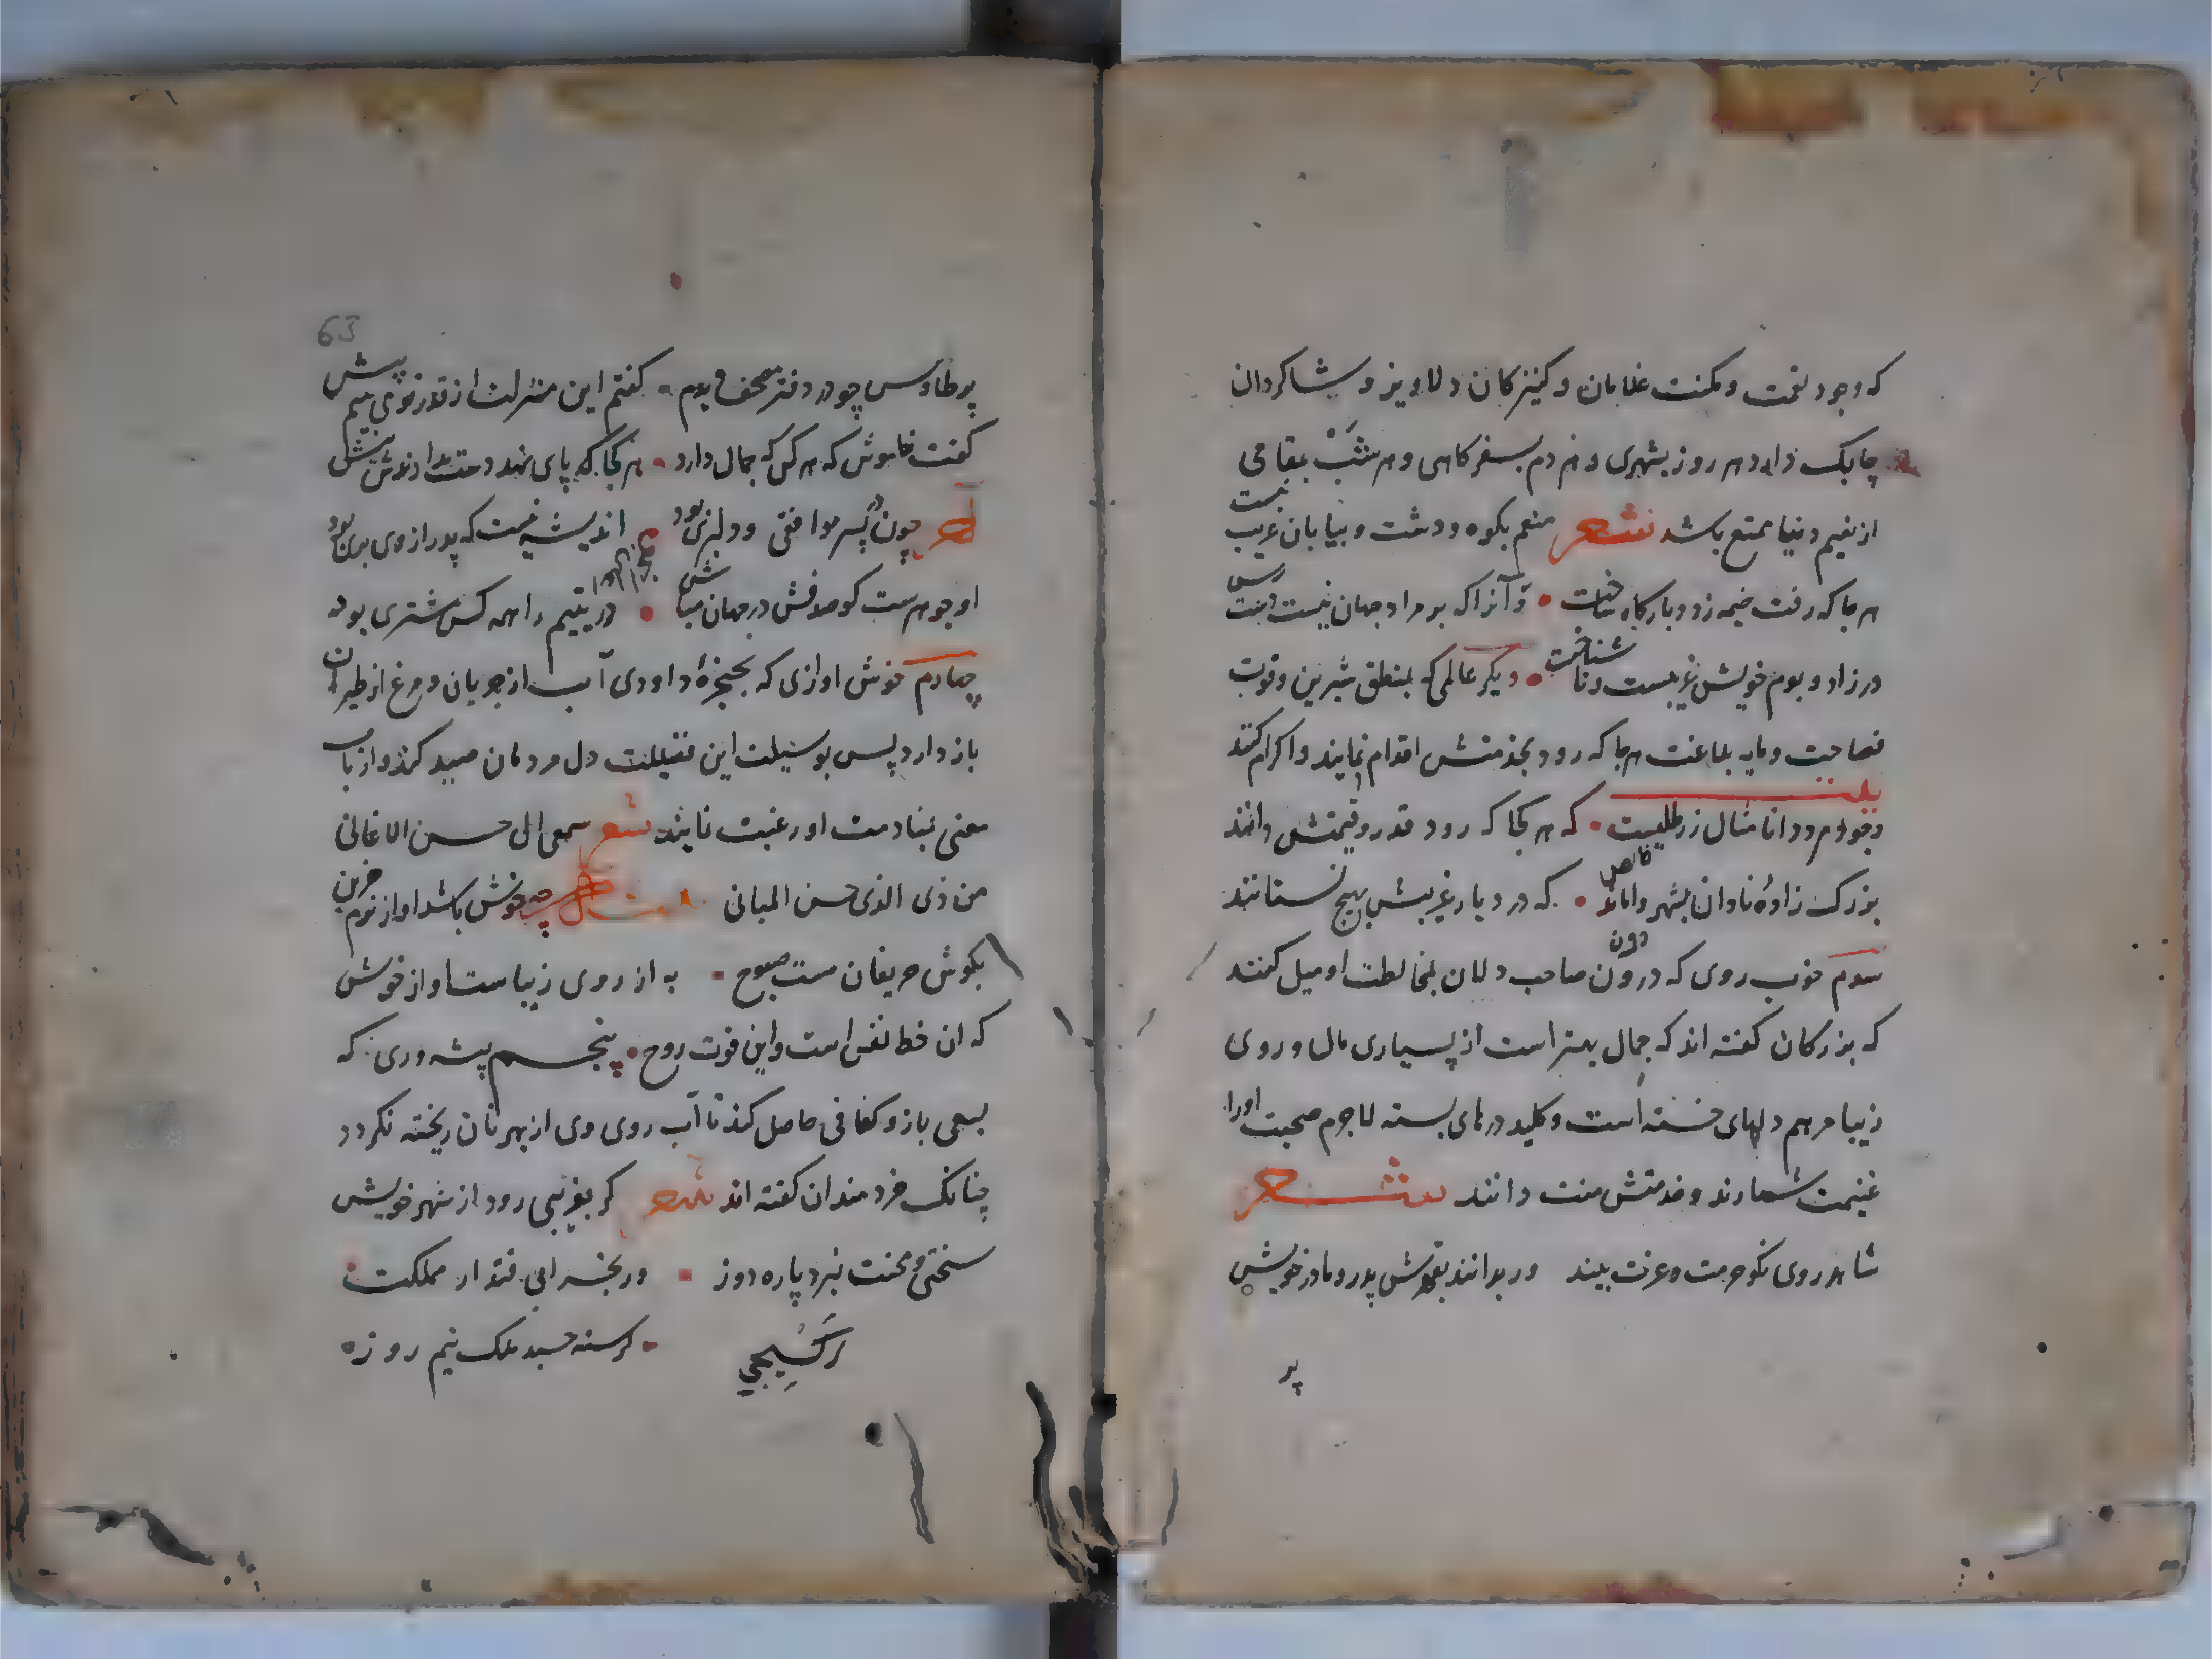 که وجود نعمت و مکنت غلامان و کنیزکان دلاویز و شاکردان
چابک دارد هر روز بشهری و هر دم بسفرکاهی و هر شب بمقامی
از نعیم دنیا متمتع باشد شعر منعم بکوه و دشت و بیابان غریب نیست
هر جا که رفت خیمه زد و بارکاه ساخت وآنرا که بر مراد جهان نیست دست رس
در زاد و بوم خویش غریبست و ناشناخت دیکر عالمی که بمنطق شیرین و قوت
فصاحت و مایه بلاغت هر جا که رود بخدمتش اقدام نمایند و اکرام کنند
بیت
وجود مردم دانا مثال زر طلیست که هر کجا که رود قدر و قیمتش دانند
بزرک زادهٔ نادان بشهر واماند که در دیار غریبش بهیچ نستانند
سوم خوب روی که درون صاحب دلان بمخالطت او میل کنند
که بزرکان کفته اند که جمال بهتر است از بسیاری مال و روی
زیبا مرهم دلهای خسته است و کلید درهای بسته لاجرم صحبت اورا
غنیمت شمارند و خدمتش منت دانند شعر
شاهد روی نکو حرمت و عزت بیند ور برانند بقهرش پدر و مادر خویش
پر
63
پر طاوس چو در دفتر مصحف دیدم کفتم این منزلت از قدر تو می بینم بیش
کفت خاموش که هر کس که جمال دارد هر کجا که پای نهد دست ندارندش پیش
آخر چون در پسر موافقی و دلبری بود اندیشه نیست که پدر از وی بری بود
او جوهرست کو صدفش در جهان مباش در یتیم را همه کس مشتری بود
چهارم خوش اوازی که بحنجرهٔ داودی آب از جریان و مرغ از طیران
باز دارد پس بوسیلت این فضیلت دل مردمان صید کند و ارباب
معنی بمنادمت او رغبت نمایند شعر سمعی الی حسن الاغانی
من ذی الذی حسن المبانی چه خوش باشد اواز نرم حزین
بکوش حریفان مست صبوح به از روی زیباست اواز خوش
که ان حظ نفس است و این قوت روح پنجم پیشه وری که
بسعی بازو کفافی حاصل کند تا آب روی وی از بهر نان ریخته نکردد
چنانک خردمندان کفته اند شعر کر بغریبی رود از شهر خویش
سختی و محنت نبرد پاره دوز ور بخرابی فتد از مملکت
کرسنه خسبد ملک نیم روزه